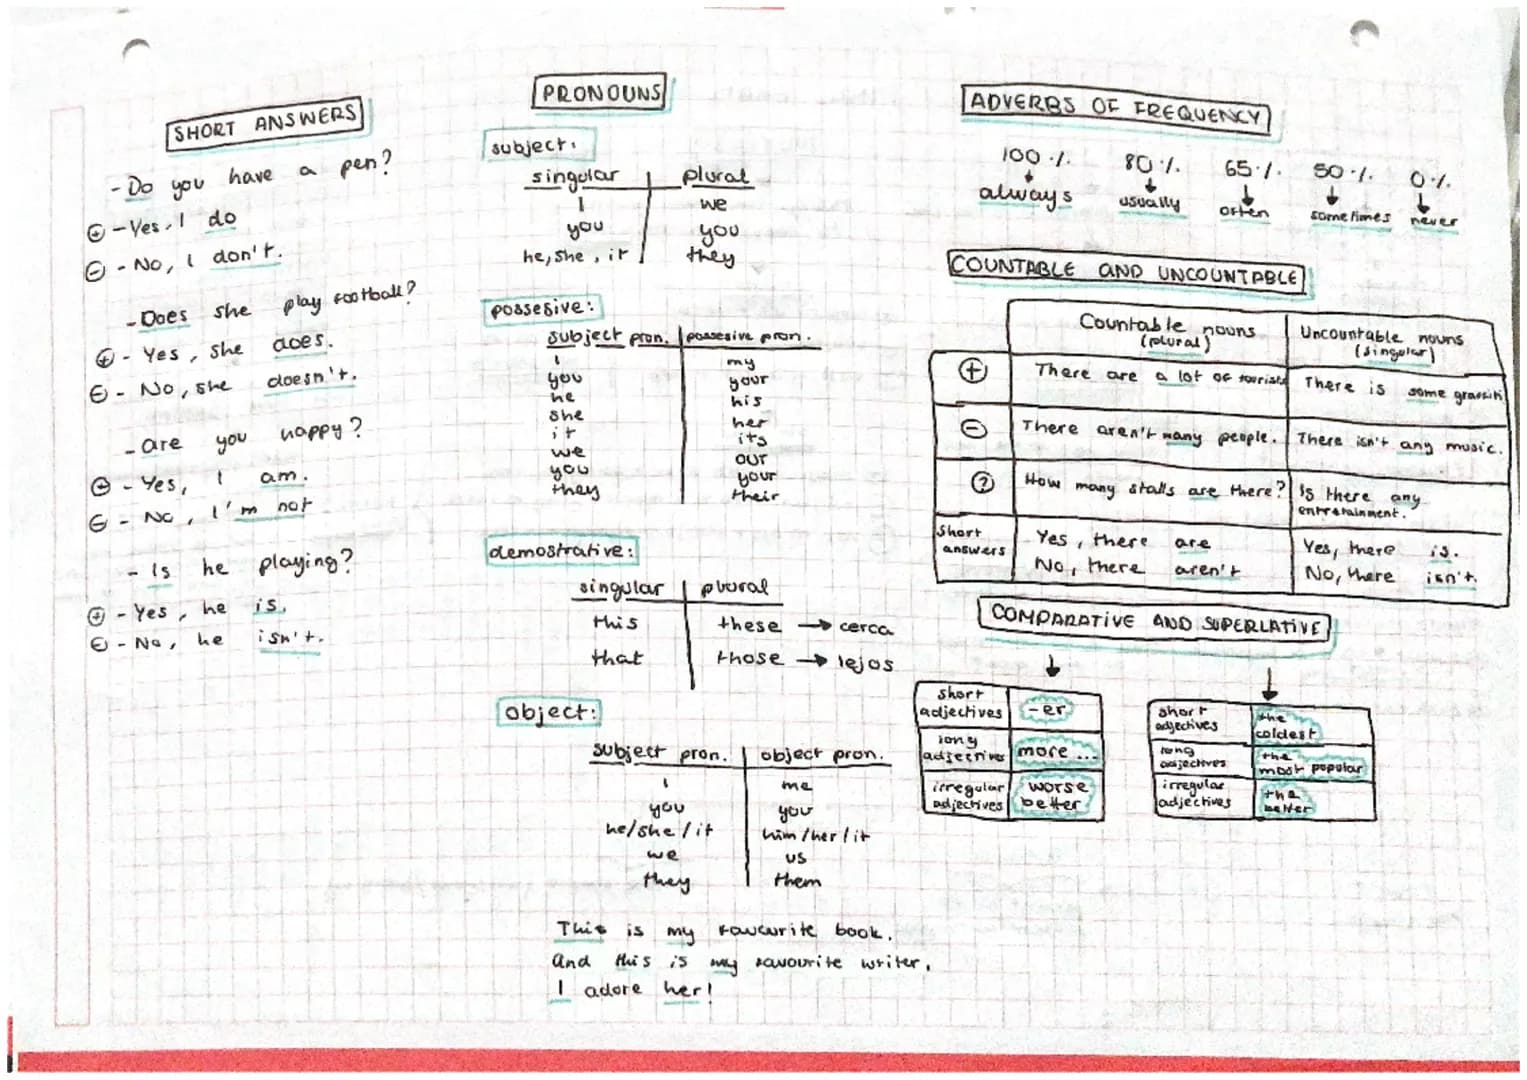 SHORT ANSWERS
- Do you have a pen?
⊕ - Yes, I do
⊖ - No, I don't.
- Does she play football?
⊕ - Yes, she does.
⊖ - No, she doesn't.
- are you happy?
⊕ - Yes, I am.
⊖ - No, I'm not
- Is he playing?
⊕ - Yes, he is.
⊖ - No, he isn't.
PRONOUNS
subject:
singular plural
I we
you you
he, she, it they
possesive:
subject pron. possesive pron.
I my
you your
he his
she her
it its
we our
you your
they their
demostrative:
singular plural
this these → cerca
that those → lejos
object:
subject pron. object pron.
I me
you you
he/she/it him/her/it
we us
they them
This is my favourite book.
And this is my favourite writer,
I adore her!
ADVERBS OF FREQUENCY
100% 80% 65% 50% 0%
always usually often sometimes never
COUNTABLE AND UNCOUNTABLE
Countable nouns (plural) Uncountable nouns (singular)
⊕ There are a lot of tourists There is some graffiti
⊖ There aren't many people. There isn't any music.
? How many stalls are there? Is there any entertainment.
Short answers Yes, there are Yes, there is.
No, there aren't No, there isn't.
COMPARATIVE AND SUPERLATIVE
short adjectives -er
long adjectives more ...
irregular adjectives worse better
short adjectives the coldest
long adjectives the most popular
irregular adjectives the better